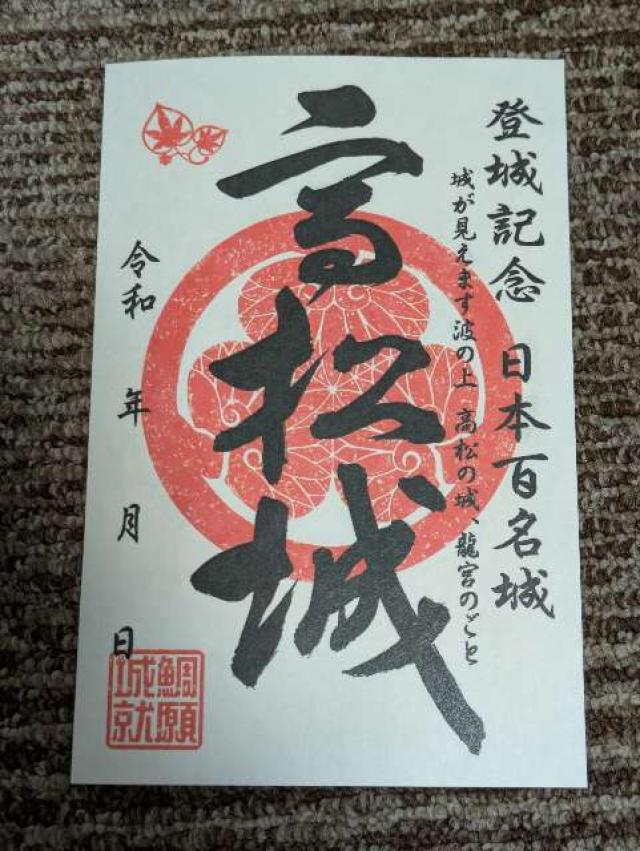 登城記念 日本百名城
城が見えます波の上 高松の城、龍宮のごと
高松城
令和 年 月 日
鯛願城就